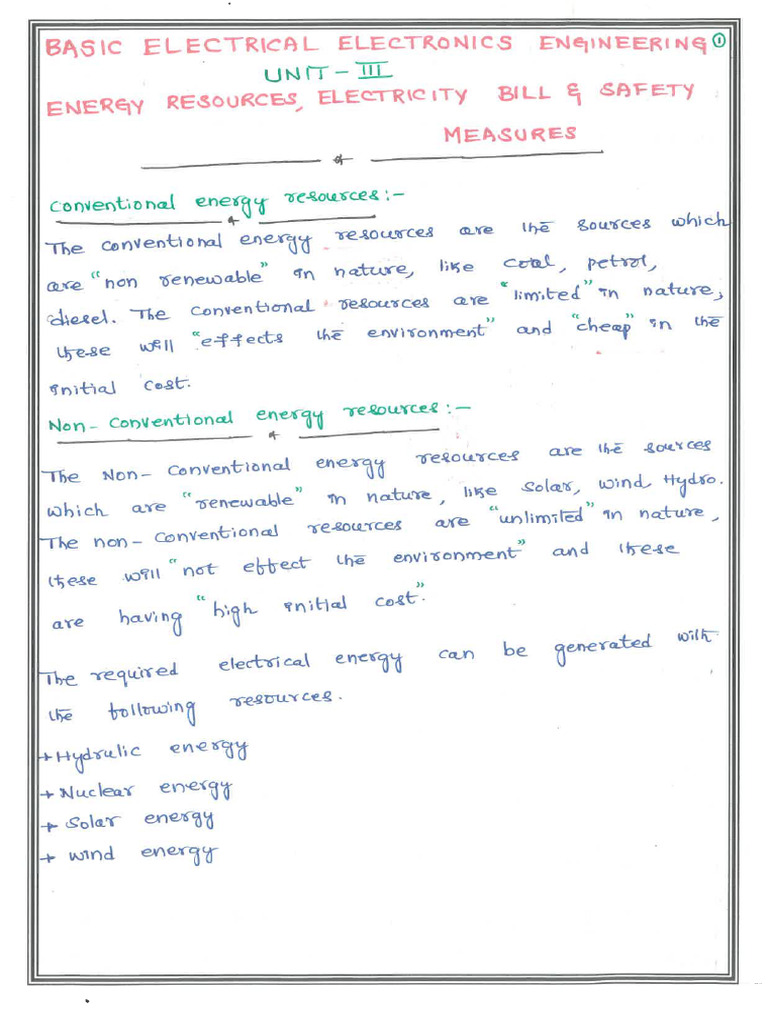 BASIC ELECTRICAL ELECTRONICS ENGINEERING ①
UNIT - III
ENERGY RESOURCES, ELECTRICITY BILL & SAFETY
MEASURES
Conventional energy resources:-
The conventional energy resources are the sources which
are "non renewable" in nature, like coal, petrol,
diesel. The conventional resources are "limited" in nature,
these will "effects the environment" and "cheap" in the
initial cost.
Non-Conventional energy resources:-
The Non-Conventional energy resources are the sources
which are "renewable" in nature, like Solar, wind, Hydro.
The non-conventional resources are "unlimited" in nature,
these will "not effect the environment" and these
are having "high initial cost."
The required electrical energy can be generated with
the following resources.
→ Hydrulic energy
→ Nuclear energy
→ Solar energy
→ wind energy